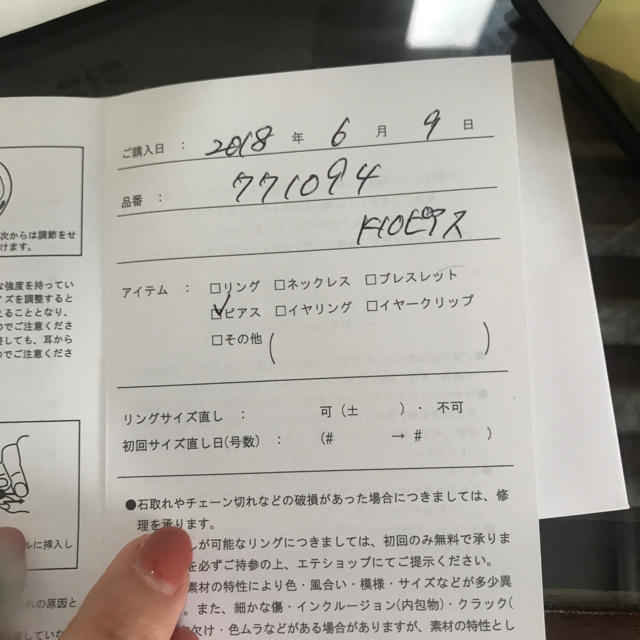 次からは調節をせ
けます。
な強度を持ってい
イズを調整すると
えることとなり、
のでご注意くださ
としても、耳から
のでご注意くださ
ルに挿入し
れの原因と
ご購入日 : 2018 年 6 月 9 日
品番 : 771094
K10ピアス
アイテム : □リング □ネックレス □ブレスレット
☑ピアス □イヤリング □イヤークリップ
□その他( )
リングサイズ直し : 可(± )・ 不可
初回サイズ直し日(号数) : (# → # )
●石取れやチェーン切れなどの破損があった場合につきましては、修
理を承ります。
しが可能なリングにつきましては、初回のみ無料で承りま
を必ずご持参の上、エテショップにてご提示ください。
素材の特性により色・風合い・模様・サイズなどが多少異
。また、細かな傷・インクルージョン(内包物)・クラック(
欠け・色ムラなどがある場合がありますが、素材の特性とし